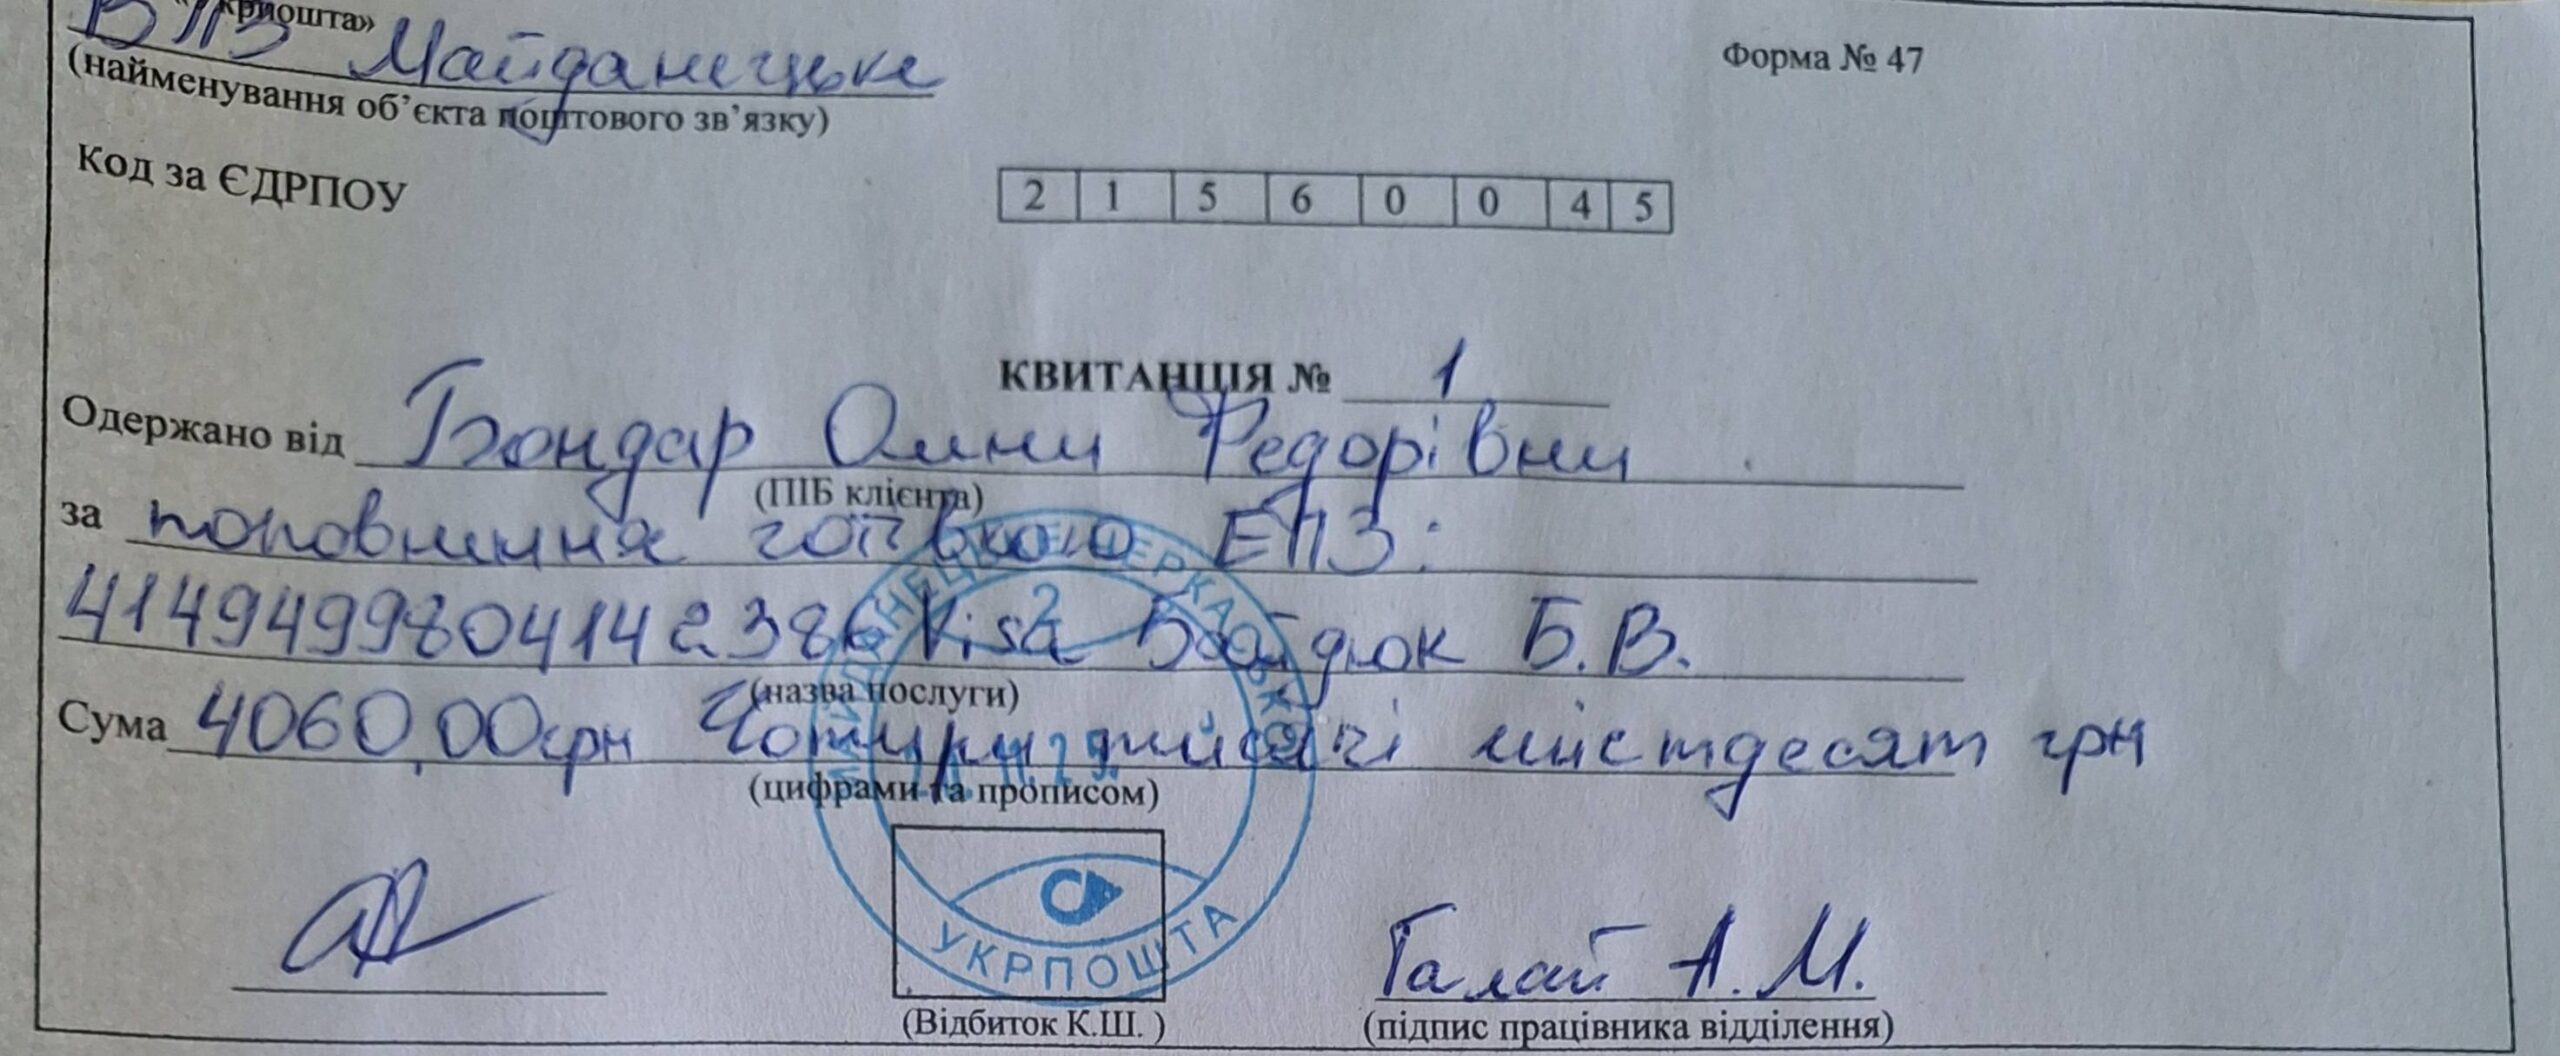 «Укрпошта»
ВПЗ Майданецьке
(найменування об’єкта поштового зв’язку)
Форма № 47
Код за ЄДРПОУ
2 1 5 6 0 0 4 5
КВИТАНЦІЯ № 1
Одержано від Бондар Олини Федорівни
(ПІБ клієнта)
за поповнення готівкою ЕПЗ:
4149499804142386 Visa Байдюк Б.В.
(назва послуги)
Сума 4060,00грн Чотири тисячі шістдесят грн
(цифрами та прописом)
УКРПОШТА
Галай А.М.
(Відбиток К.Ш. )
(підпис працівника відділення)